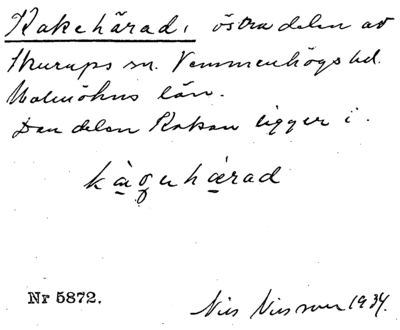 Kakehärad, östra delen av
Skurups sn. Vemmenhögs hd.
Malmöhus län.
Den delen Kakan ligger i.
kagenhærad
Nr 5872.
Nils Nilsson 1934.